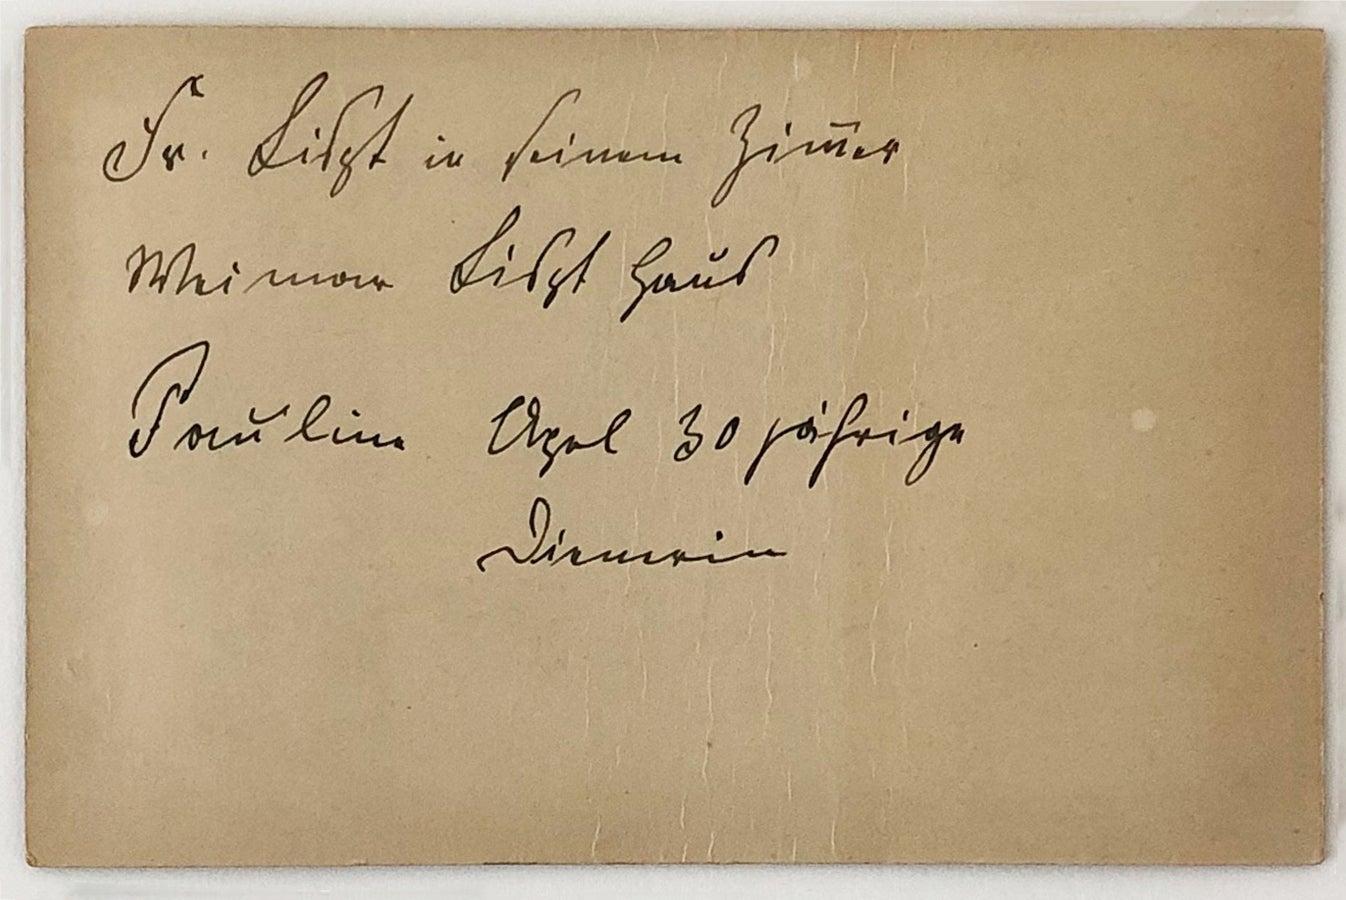 Fr. Liszt in seinem Zim̅er
Weimar Liszt Haus
Pauline Apel 30 jährige
Dienerin